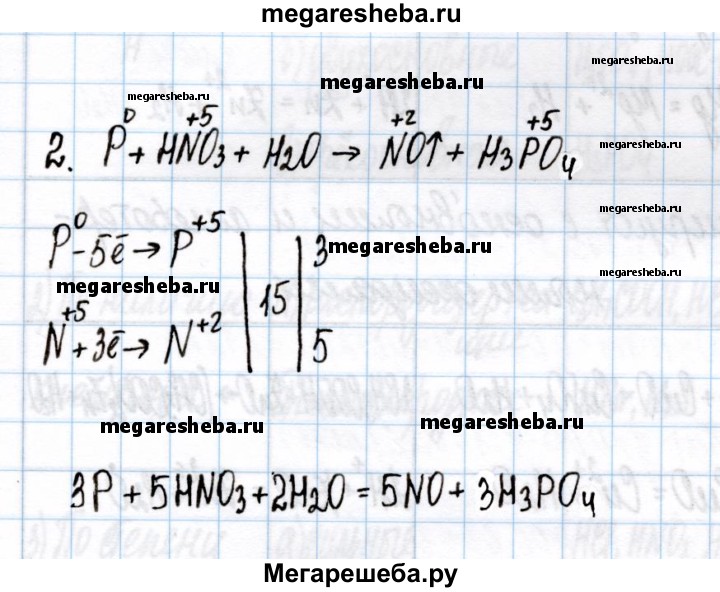 megaresheba.ru
megaresheba.ru
megaresheba.ru
megaresheba.ru
0 +5 +2 +5
2. P + HNO₃ + H₂O → NO↑ + H₃PO₄
megaresheba.ru
P⁰ - 5ē → P⁺⁵ | | 3
megaresheba.ru
megaresheba.ru
megaresheba.ru
15
N⁺⁵ + 3ē → N⁺² | | 5
megaresheba.ru
megaresheba.ru
3P + 5HNO₃ + 2H₂O = 5NO + 3H₃PO₄
Мегарешеба.ру